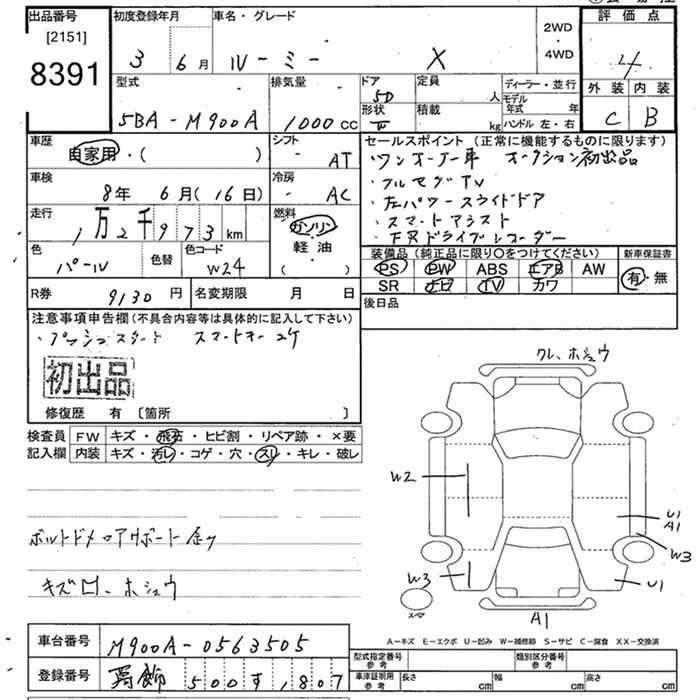 出品番号 初度登録年月 車名・グレード 2WD・4WD 評価点
[2151] 8391 3 6月 ルーミー X 4
型式 排気量 ドア 5D 定員 人 ディーラー・並行 外装 内装
5BA-M900A 1000cc 形状 積載 kg モデル年式 年 ハンドル 左・右 C B
車歴 自家用・( ) シフト AT セールスポイント (正常に機能するものに限ります)
・ワンオーナー車 オークション初出品
車検 8年 6月(16日) 冷房 AC ・フルセグTV
・左パワースライドドア
走行 1万2千973km 燃料 ガソリン 軽油 ( ) ・スマートアシスト
・ドライブレコーダー
色 パール 色替 色コード W24 装備品 (純正品に限り○をつけてください) 新車保証書
PS PW ABS エアB AW 有・無
SR ナビ TV カワ
R券 9130円 名変期限 月 日 後日品
注意事項申告欄(不具合内容等は具体的に記入して下さい)
・プッシュスタート スマートキー2ケ
初出品
修復歴 有 〔箇所 〕
検査員 FW キズ・飛石・ヒビ割・リペア跡・×要
記入欄 内装 キズ・汚レ・コゲ・穴・スレ・キレ・破レ
クレ、ホシュウ
W2
U1
A1
W3
W3
U1
スペア
A1
キズ凹、ホシュウ
A-キズ E-エクボ U-凹み W-補修跡 S-サビ C-腐食 XX-交換済
車台番号 M900A-0563505 型式指定番号 参考 類別区分番号 参考
登録番号 500す1807 車庫証明用 参考 長さ cm 幅 cm 高さ cm